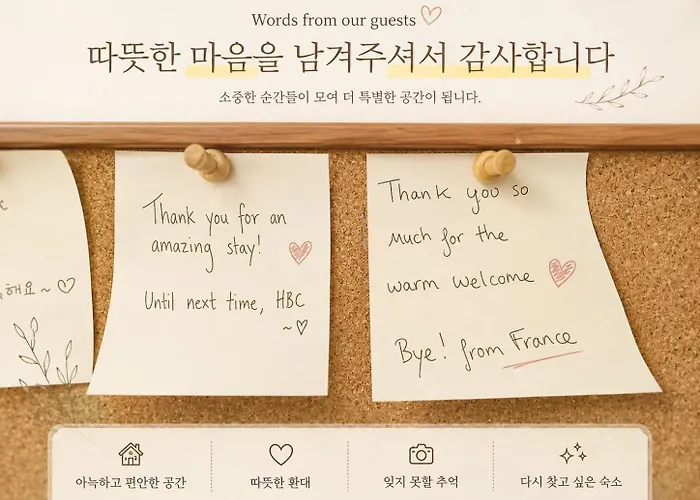 Words from our guests
따뜻한 마음을 남겨주셔서 감사합니다
소중한 순간들이 모여 더 특별한 공간이 됩니다.
해요~♡
Thank you for an
amazing stay!
Until next time, HBC
~♡
Thank you so
much for the
warm welcome
Bye! from France
아늑하고 편안한 공간
따뜻한 환대
잊지 못할 추억
다시 찾고 싶은 숙소